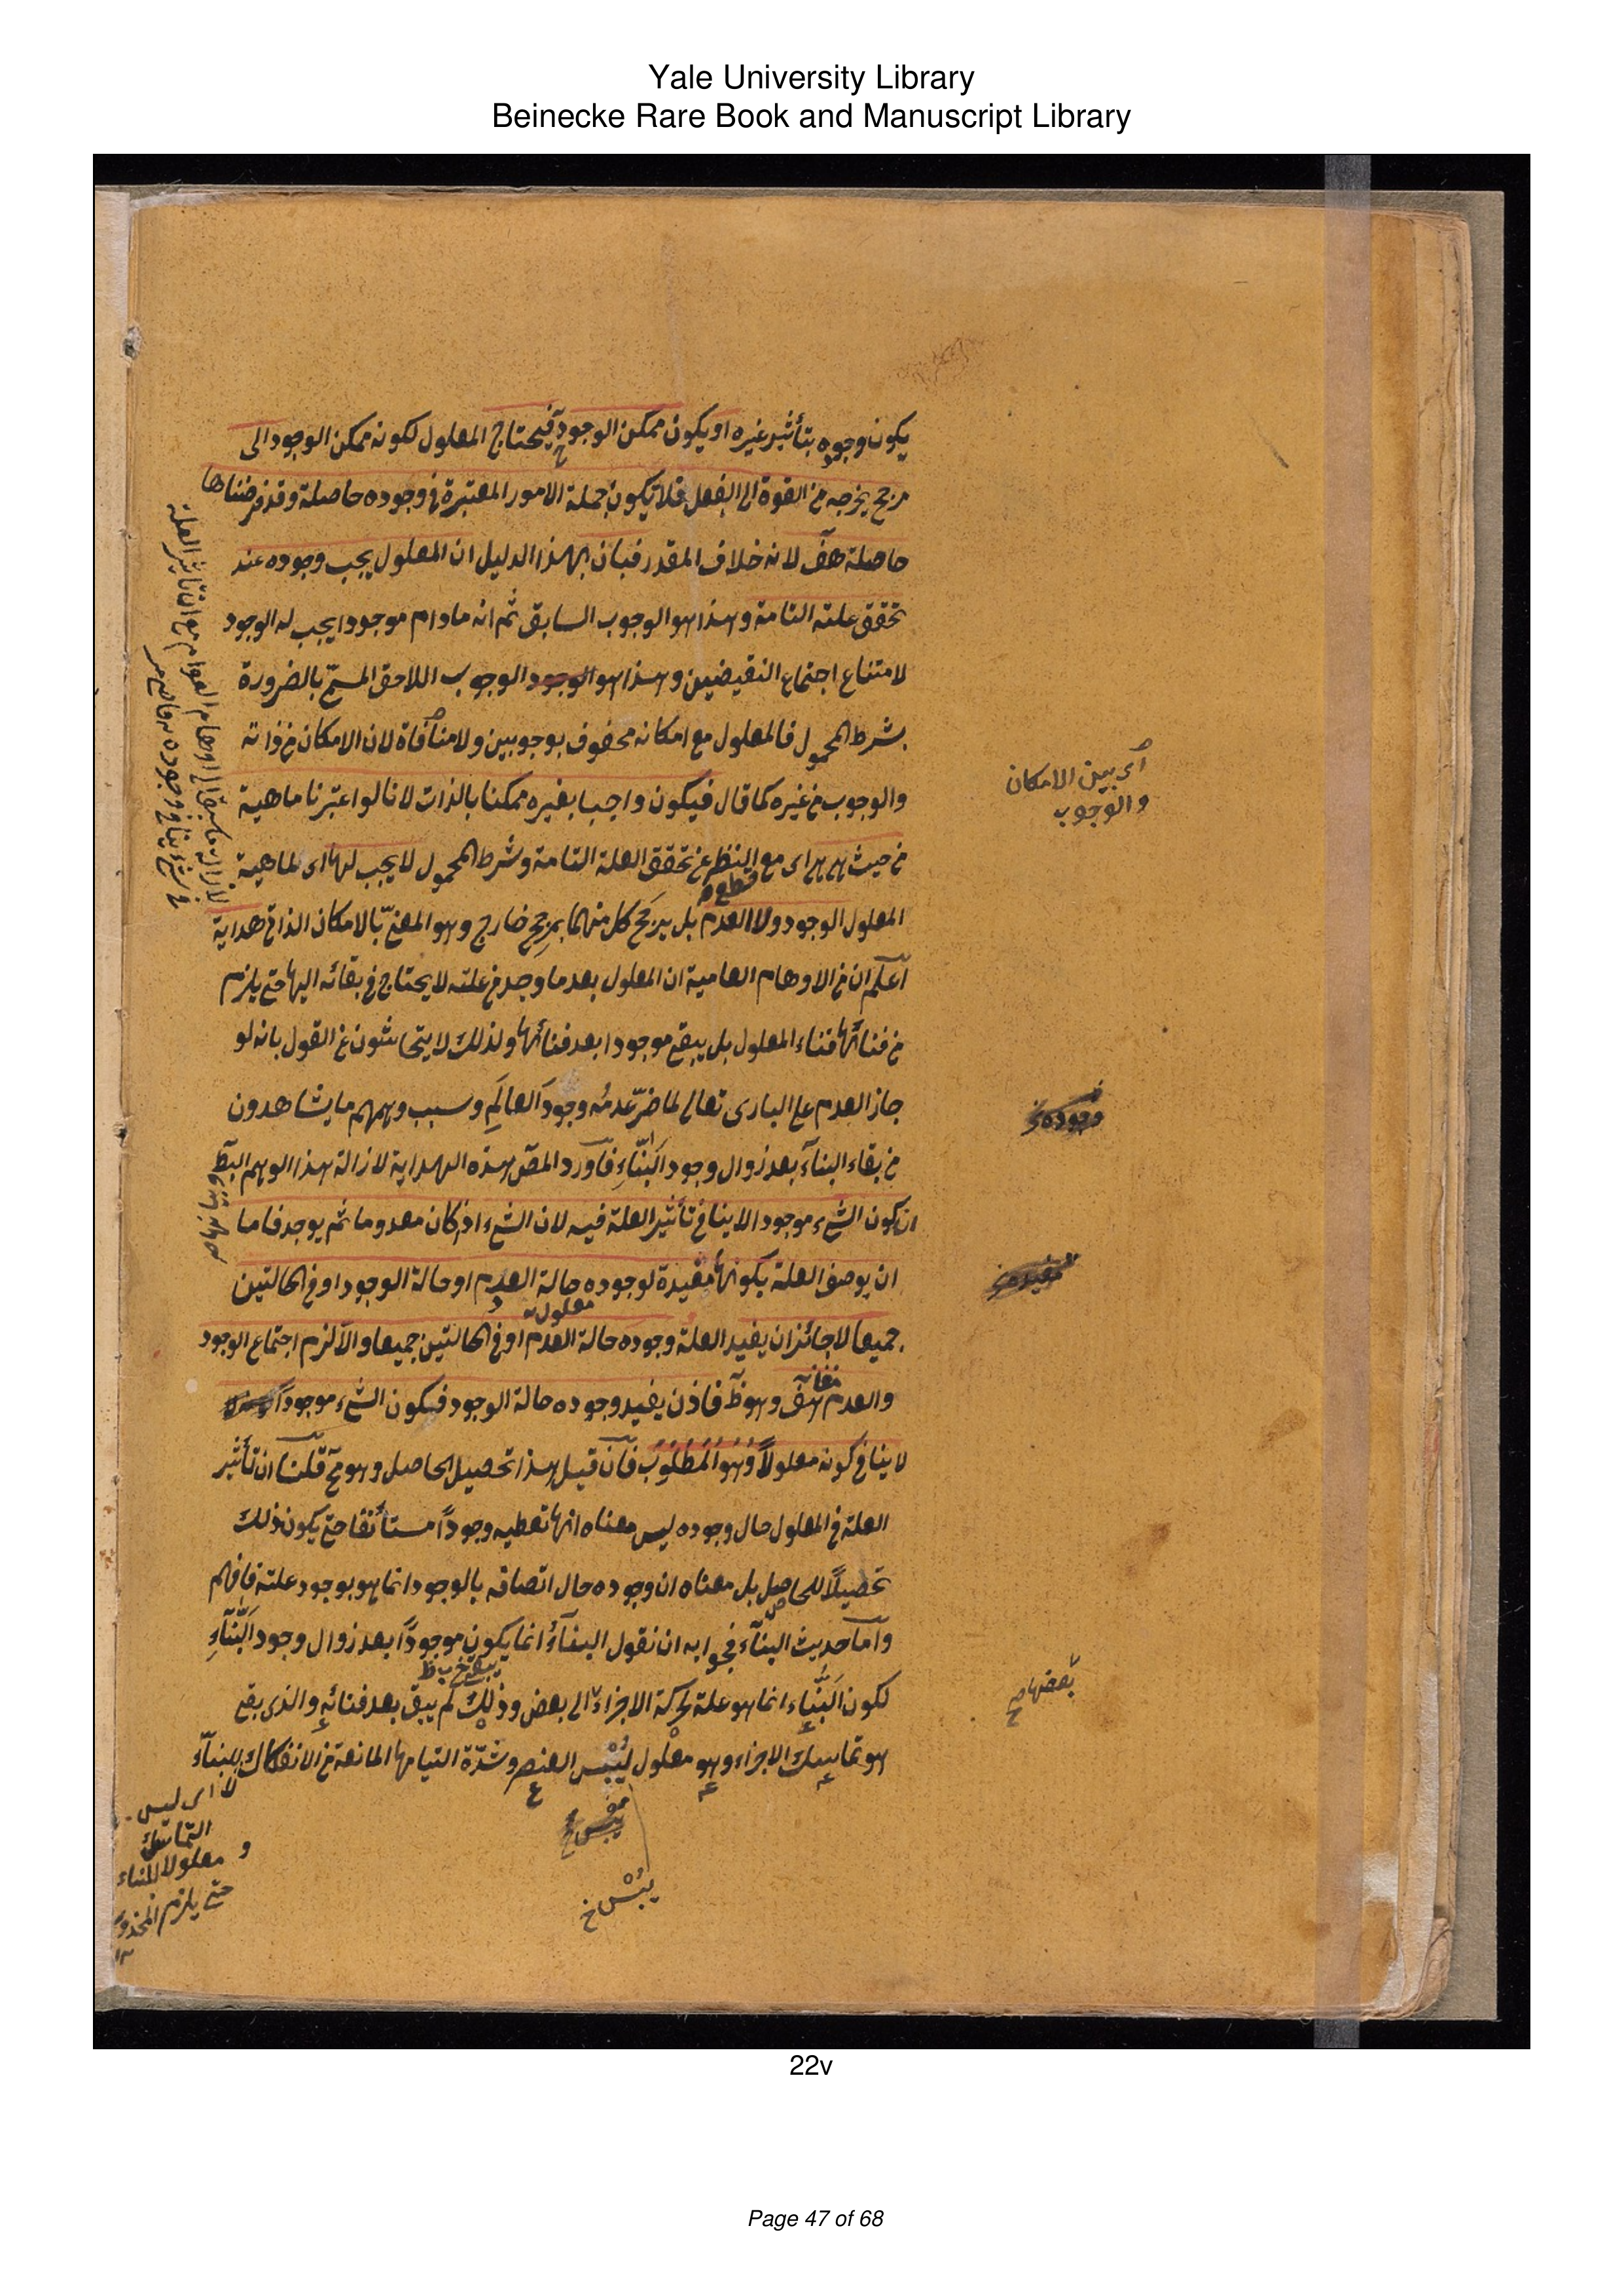 Yale University Library
Beinecke Rare Book and Manuscript Library
يكون وجوده بتأثير غيره او يكون ممكن الوجود فيحتاج المعلول لكونه ممكن الوجود الى
مرجح يخرجه من القوة الى الفعل فلا يكون جملة الامور المعتبرة فى وجوده حاصلة وقد فرضناها
حاصلة هف لانه خلاف المقدر فبان بهذا الدليل ان المعلول يجب وجوده عند
تحقق علته التامة وهذا هو الوجوب السابق ثم انه مادام موجودا يجب له الوجود
لامتناع اجتماع النقيضين وهذا هو الوجود الوجوب اللاحق المسمّى بالضرورة
بشرط المحمول فالمعلول مع امكانه محفوف بوجوبين ولا منافاة لان الامكان من ذاته
والوجوب من غيره كما قال فيكون واجبا بغيره ممكنا بالذات لانا لو اعتبرنا ماهية
اى بين الامكان
والوجوب
من حيث هى هى اى مع النظر عن تحقق العلة التامة وشرط المحمول لا يجب لها اى لماهية
قطع
المعلول الوجود ولا العدم بل يرجح كل منهما بمرجح خارج وهو المعنىّ بالامكان الذاتى هداية
اعلم ان من الاوهام العامية ان المعلول بعد ما وجد من علته لا يحتاج فى بقائه اليها حتى يلزم
من فنائها فناء المعلول بل يبقى موجودا بعد فنائها ولذلك لا يتحاشون عن القول بانه لو
جاز العدم على البارى تعالى لما ضرّ عدمُه وجودَ العالَمِ وسبب وهمهم ما يشاهدون
من بقاء البناء بعد زوال وجود البَنّاءِ فاورد المص هذه الهداية لازالة هذا الوهم البط
ان كون الشئ موجودا لا ينافى تأثير العلة فيه لان الشئ اذ كان معدوما ثم يوجد فاما
ان يوصف العلة بكونها مفيدة لوجوده حالة العدم او حالة الوجود او فى الحالتين
معلول
جميعا لا جائز ان يفيد العلة وجوده حالة العدم او فى الحالتين جميعا والا لزم اجتماع الوجود
والعدم هف وهو ظ فاذن يفيد وجوده حالة الوجود فيكون الشئ موجودا
لا ينافى كونه معلولاً وَهُوَ الْمَطْلُوبُ فان قيل هذا تحصيل الحاصل وهو مح قلنا ان تأثير
العلة فى المعلول حال وجوده ليس معناه انها تعطيه وجوداً مستأنفا حتى يكون ذلك
تحصيلاً للحاصل بل معناه ان وجوده حال اتصافه بالوجود انما هو بوجود علته فافهم
واما حديث البناء فجوابه ان نقول البناءُ انما يكون موجوداً بعد زوال وجود البَنّاءِ
لكون البَنَّاءِ انما هو علة لحركة الاجزاء الى بعض وذلك لم يبق بعد فنائه والذى بقى
بعضها صح
هو تماسك الاجزاء وهو معلول ليُبْس العنصر وشدّة التيامها المانعة من الانفكاك للبنّاء
يبُسْ خ
لا اى ليس
التماسك
معلولا للبناء
حتى يلزم المحذور
١٢
22v
Page 47 of 68